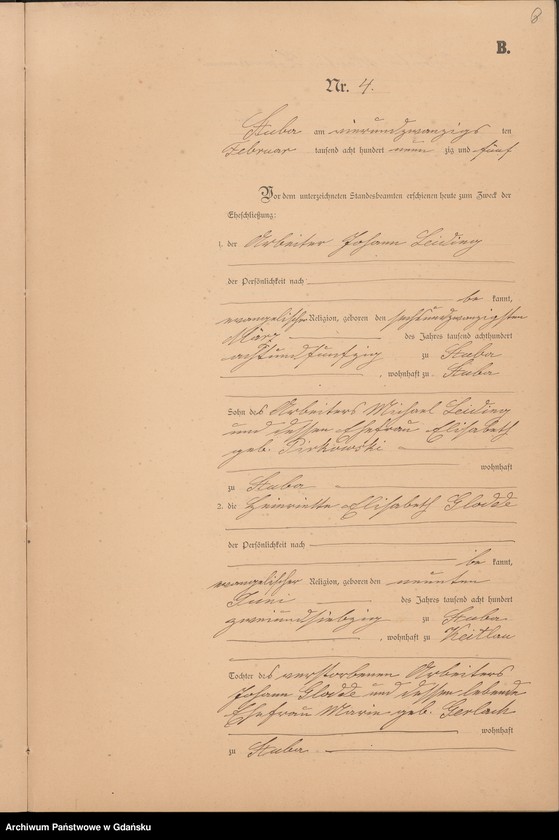 8
B.
Nr. 4.
Stuba am vierundzwanzigs ten
Februar tausend acht hundert neun zig und fünf
Vor dem unterzeichneten Standesbeamten erschienen heute zum Zweck der
Eheschließung:
1. der Arbeiter Johann Leiding
der Persönlichkeit nach
be kannt,
evangelischer Religion, geboren den sechsundzwanzigsten
März des Jahres tausend achthundert
achtundfünfzig zu Stuba
, wohnhaft zu Stuba
Sohn des Arbeiters Michael Leiding
und dessen Ehefrau Elisabeth
geb. Pirkowski
wohnhaft
zu Stuba
2. die Henriette Elisabeth Glodde
der Persönlichkeit nach
be kannt,
evangelischer Religion, geboren den neunten
Juni des Jahres tausend acht hundert
zweiundsiebzig zu Stuba
, wohnhaft zu Keitlau
Tochter des verstorbenen Arbeiters
Johann Glodde und dessen lebende
Ehefrau Marie geb. Gerlach
wohnhaft
zu Stuba
Archiwum Państwowe w Gdańsku